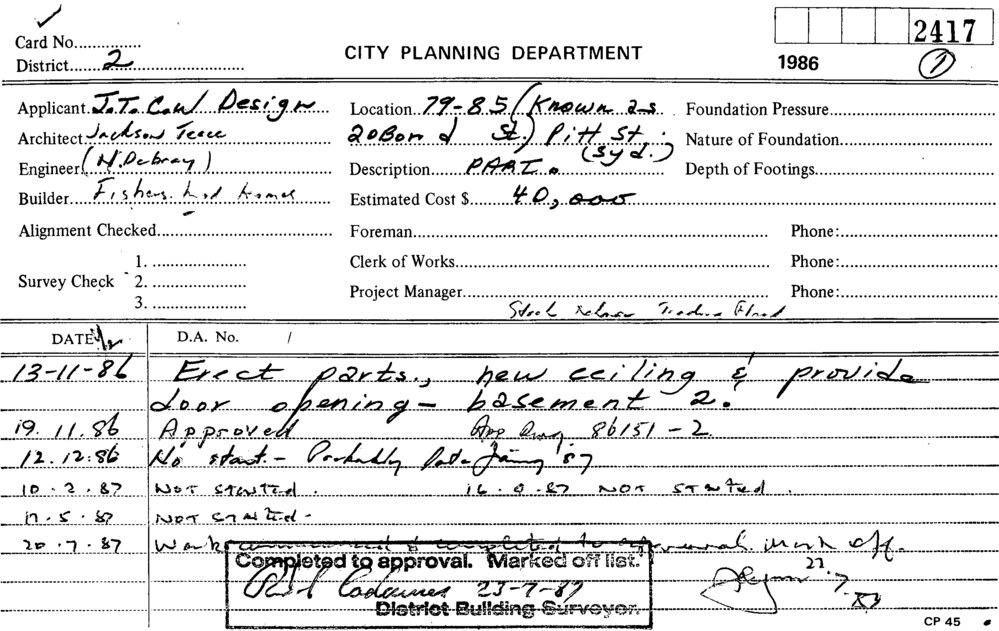 Card No..............
District......2
CITY PLANNING DEPARTMENT
2417
1986
1
Applicant J.T. Cowl Design
Location 79-85 (Known as
Foundation Pressure
Architect Jackson Teece
20 Bond St.) Pitt St.
Nature of Foundation
(Syd.)
Engineer (N. Debray)
Description PART.
Depth of Footings
Builder Fishers
Estimated Cost $ 40,000
Alignment Checked
Foreman
Phone:
Survey Check
1.
Clerk of Works
Phone:
2.
Project Manager
Phone:
3.
Stock Trading Floor
DATE
D.A. No. /
13-11-86 Erect parts., new ceiling & provide
door opening - basement 2.
19.11.86 Approved App Dwg. 86151-2
12.12.86 No start. - Probably late Jan '87
10.2.87 NOT STARTED. NOT STARTED.
17.5.87 NOT STARTED.
20.7.87 Work commenced & completed to approval. Mark off.
Completed to approval. Marked off list.
23-7-87
District Building Surveyor.
CP 45